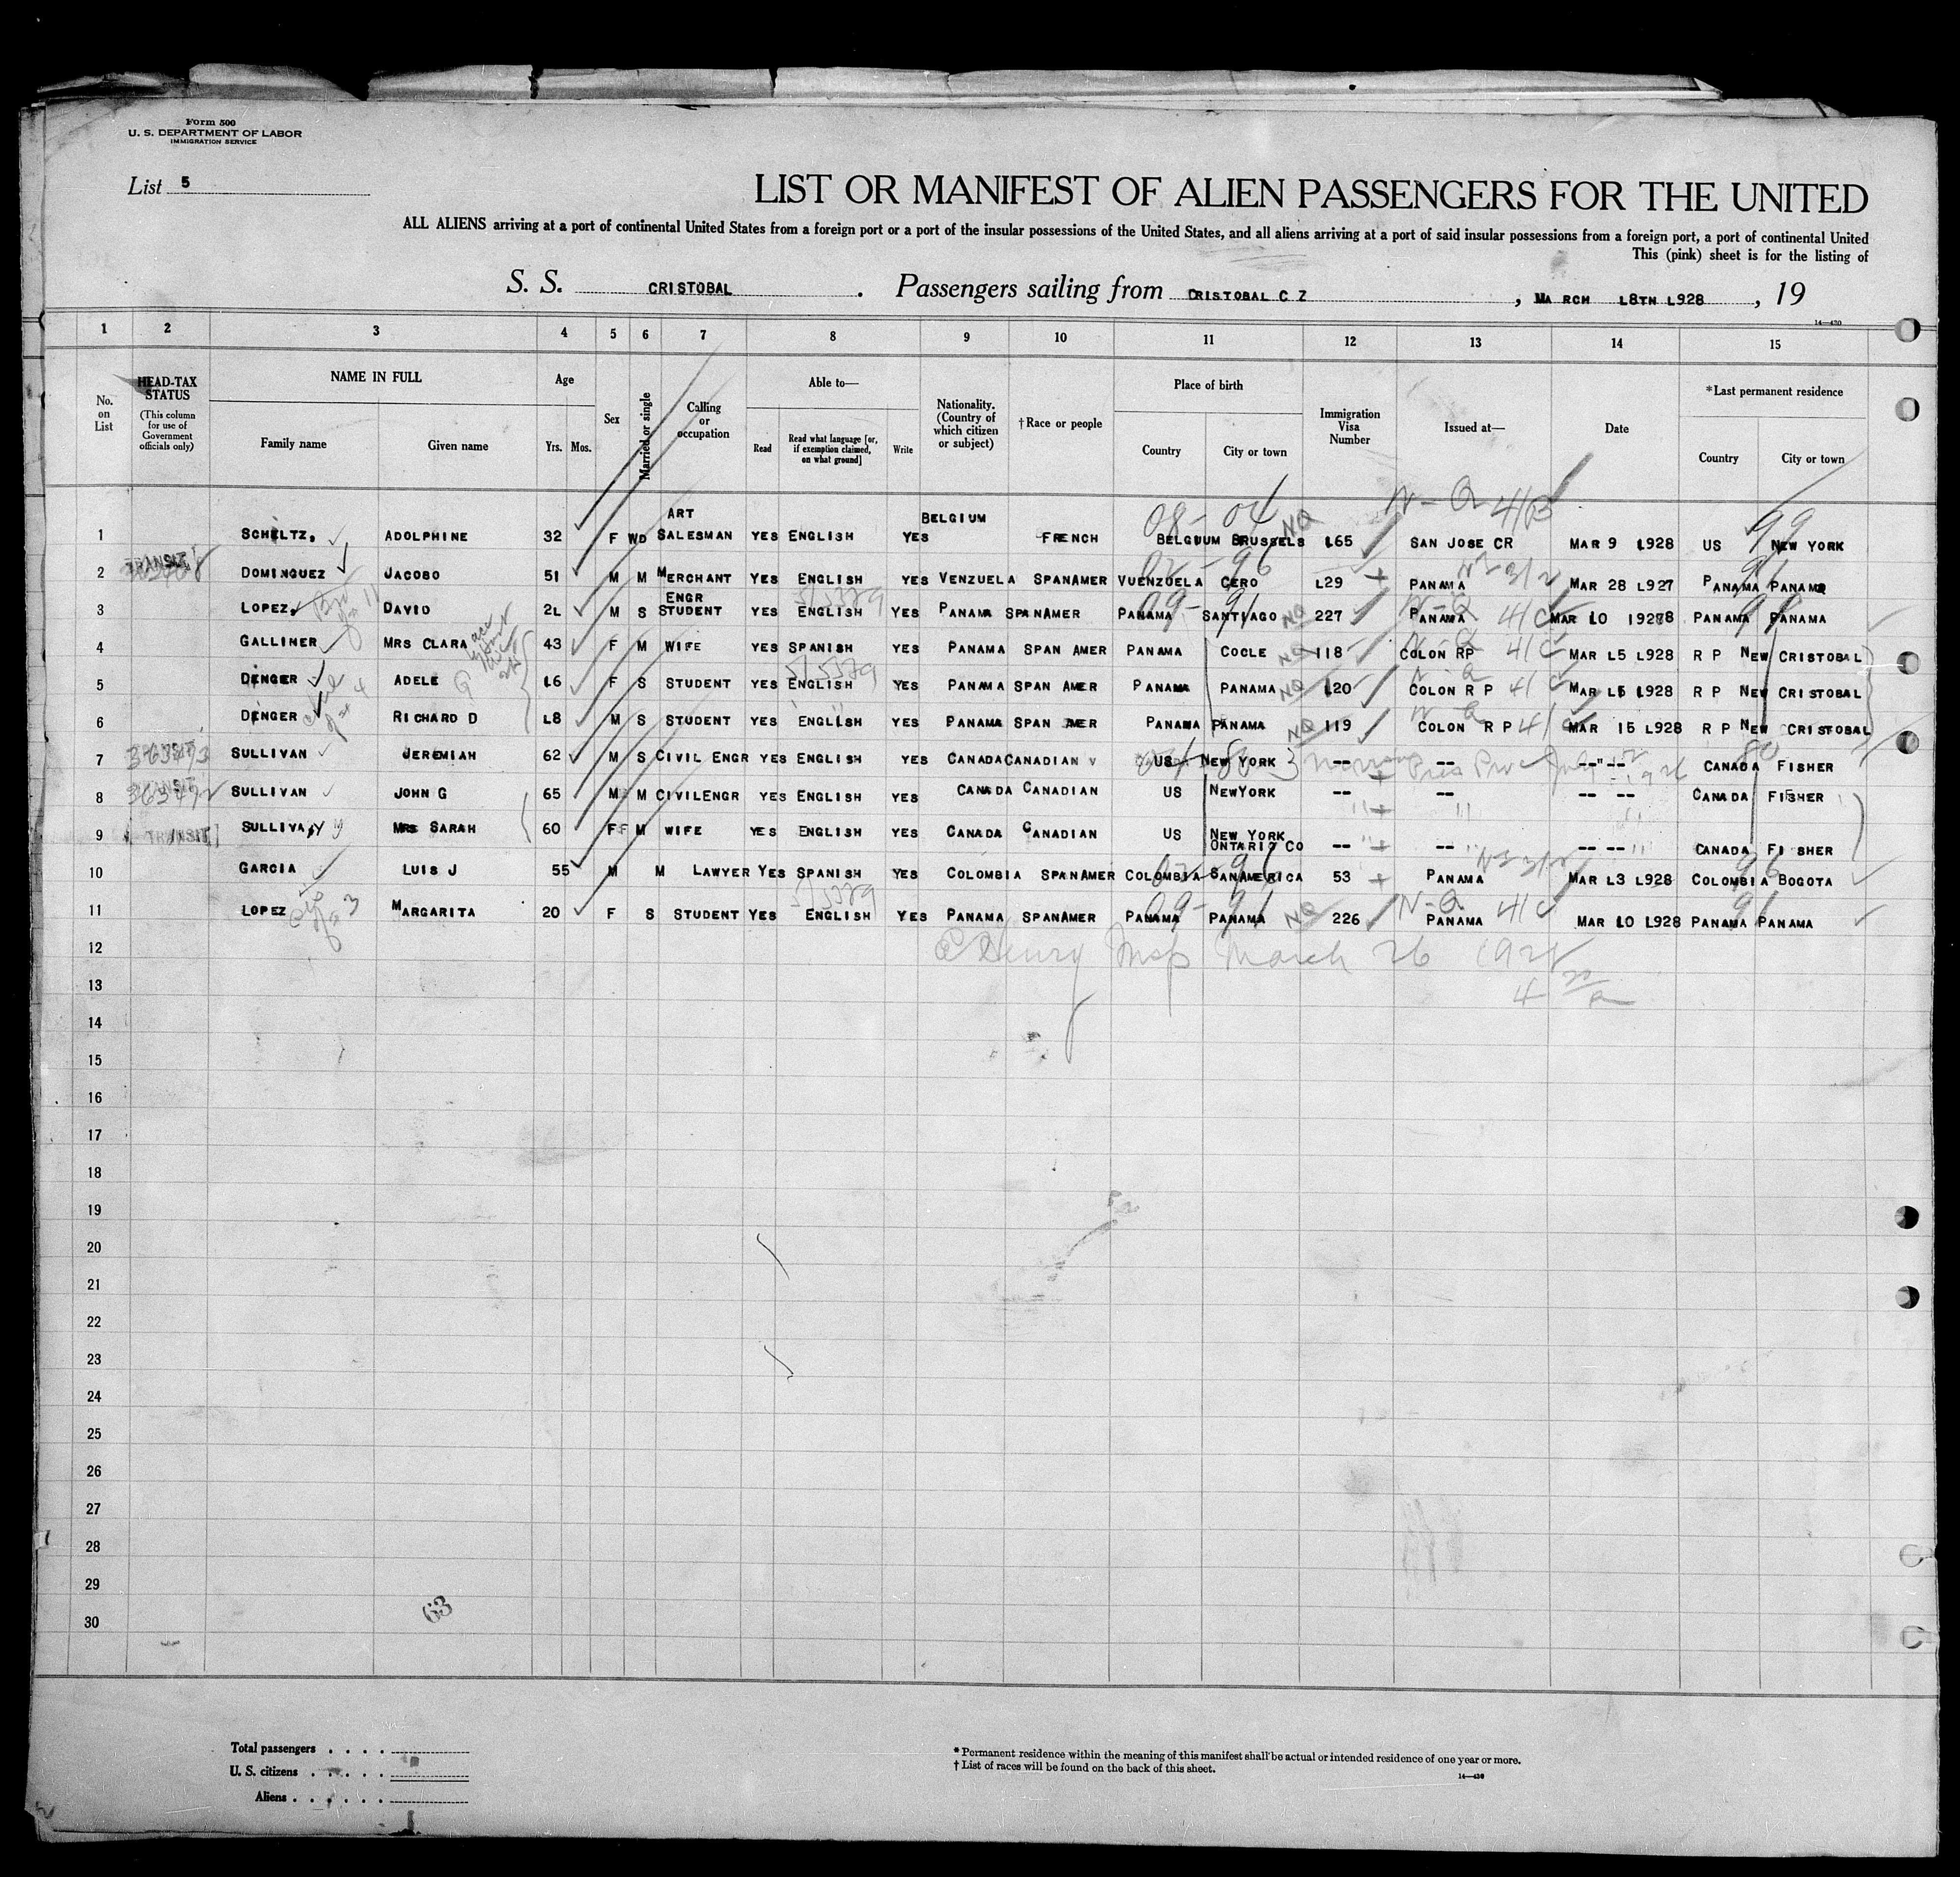 Form 500
U. S. DEPARTMENT OF LABOR
IMMIGRATION SERVICE
List 5
LIST OR MANIFEST OF ALIEN PASSENGERS FOR THE UNITED
ALL ALIENS arriving at a port of continental United States from a foreign port or a port of the insular possessions of the United States, and all aliens arriving at a port of said insular possessions from a foreign port, a port of continental United
This (pink) sheet is for the listing of
S. S. CRISTOBAL. Passengers sailing from CRISTOBAL C Z, MARCH L8TH L928, 19
14—430
1 2 3 4 5 6 7 8 9 10 11 12 13 14 15
No. on List
HEAD-TAX STATUS (This column for use of Government officials only)
NAME IN FULL
Family name Given name
Age
Yrs. Mos.
Sex
Married or single
Calling or occupation
Able to—
Read Read what language [or, if exemption claimed, on what ground] Write
Nationality. (Country of which citizen or subject)
†Race or people
Place of birth
Country City or town
Immigration Visa Number
Issued at—
Date
*Last permanent residence
Country City or town
N-Q 41B
08-04 NQ 99
1 SCHELTZ, ADOLPHINE 32 F WD ART SALESMAN YES ENGLISH YES BELGIUM FRENCH BELGIUM BRUSSELS L65 SAN JOSE CR MAR 9 L928 US NEW YORK
TRANSIT
2 DOMINGUEZ JACOBO 51 M M MERCHANT YES ENGLISH YES VENZUELA SPANAMER VUENZUELA CERO L29 PANAMA MAR 28 L927 PANAMA PANAMA
3 LOPEZ, DAVID 2L M S ENGR STUDENT YES ENGLISH YES PANAMA SPANAMER PANAMA SANTIAGO NQ 227 PANAMA 41C MAR 10 19278 PANAMA PANAMA
4 GALLINER MRS CLARA 43 F M WIFE YES SPANISH YES PANAMA SPAN AMER PANAMA COCLE NQ 118 COLON RP 41C MAR L5 L928 R P NEW CRISTOBAL
5 DENGER ADELE G L6 F S STUDENT YES ENGLISH YES PANAMA SPAN AMER PANAMA PANAMA NQ L20 COLON R P 41C MAR L5 L928 R P NEW CRISTOBAL
6 DENGER RICHARD D L8 M S STUDENT YES ENGLISH YES PANAMA SPAN AMER PANAMA PANAMA NQ 119 COLON R P 41C MAR 15 L928 R P NEW CRISTOBAL
7 SULLIVAN JEREMIAH 62 M S CIVIL ENGR YES ENGLISH YES CANADA CANADIAN US NEW YORK -- -- --"-- CANADA FISHER
8 SULLIVAN JOHN G 65 M M CIVILENGR YES ENGLISH YES CANADA CANADIAN US NEWYORK -- -- -- -- CANADA FISHER
9 TRANSIT SULLIVAN MRS SARAH 60 F M WIFE YES ENGLISH YES CANADA CANADIAN US NEW YORK ONTARIO CO -- -- -- -- CANADA FISHER
10 GARCIA LUIS J 55 M M LAWYER YES SPANISH YES COLOMBIA SPANAMER COLOMBIA SANAMERICA 53 PANAMA MAR L3 L928 COLOMBIA BOGOTA
11 LOPEZ MARGARITA 20 F S STUDENT YES ENGLISH YES PANAMA SPANAMER PANAMA PANAMA NQ 226 N-Q PANAMA 41C MAR L0 L928 PANAMA PANAMA
12 Henry Insp March 26 1928
13
14
15
16
17
18
19
20
21
22
23
24
25
26
27
28
29
30
63
Total passengers . . . .
U. S. citizens . . . . .
Aliens . . . . . .
* Permanent residence within the meaning of this manifest shall be actual or intended residence of one year or more.
† List of races will be found on the back of this sheet.
14—430